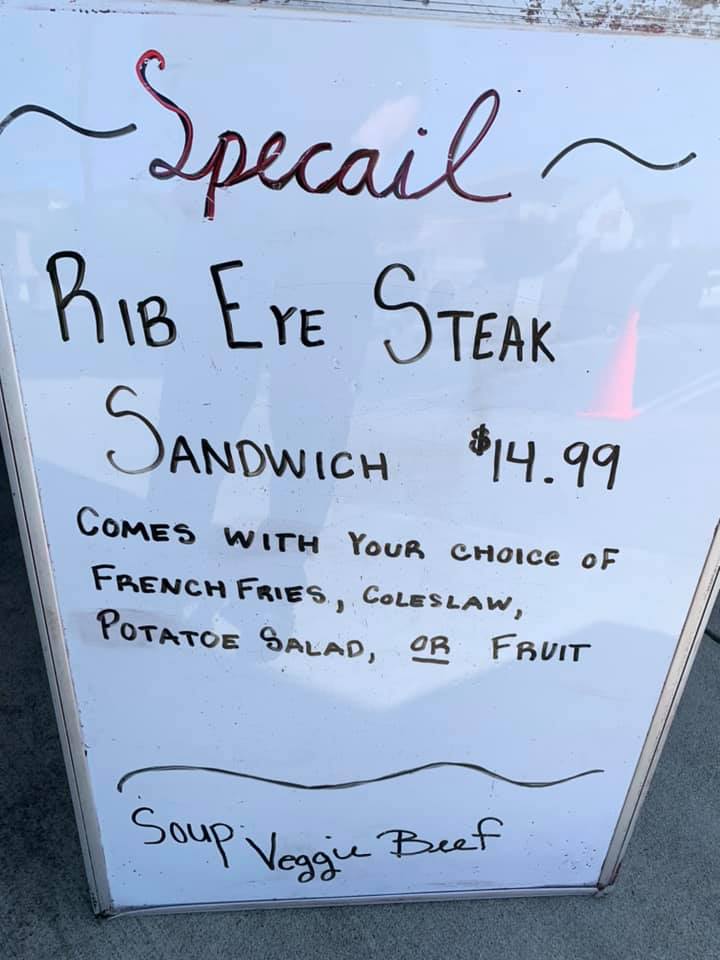 ~ Specail ~
RIB EYE STEAK
SANDWICH $14.99
COMES WITH YOUR CHOICE OF
FRENCH FRIES, COLESLAW,
POTATOE SALAD, OR FRUIT
Soup Veggie Beef